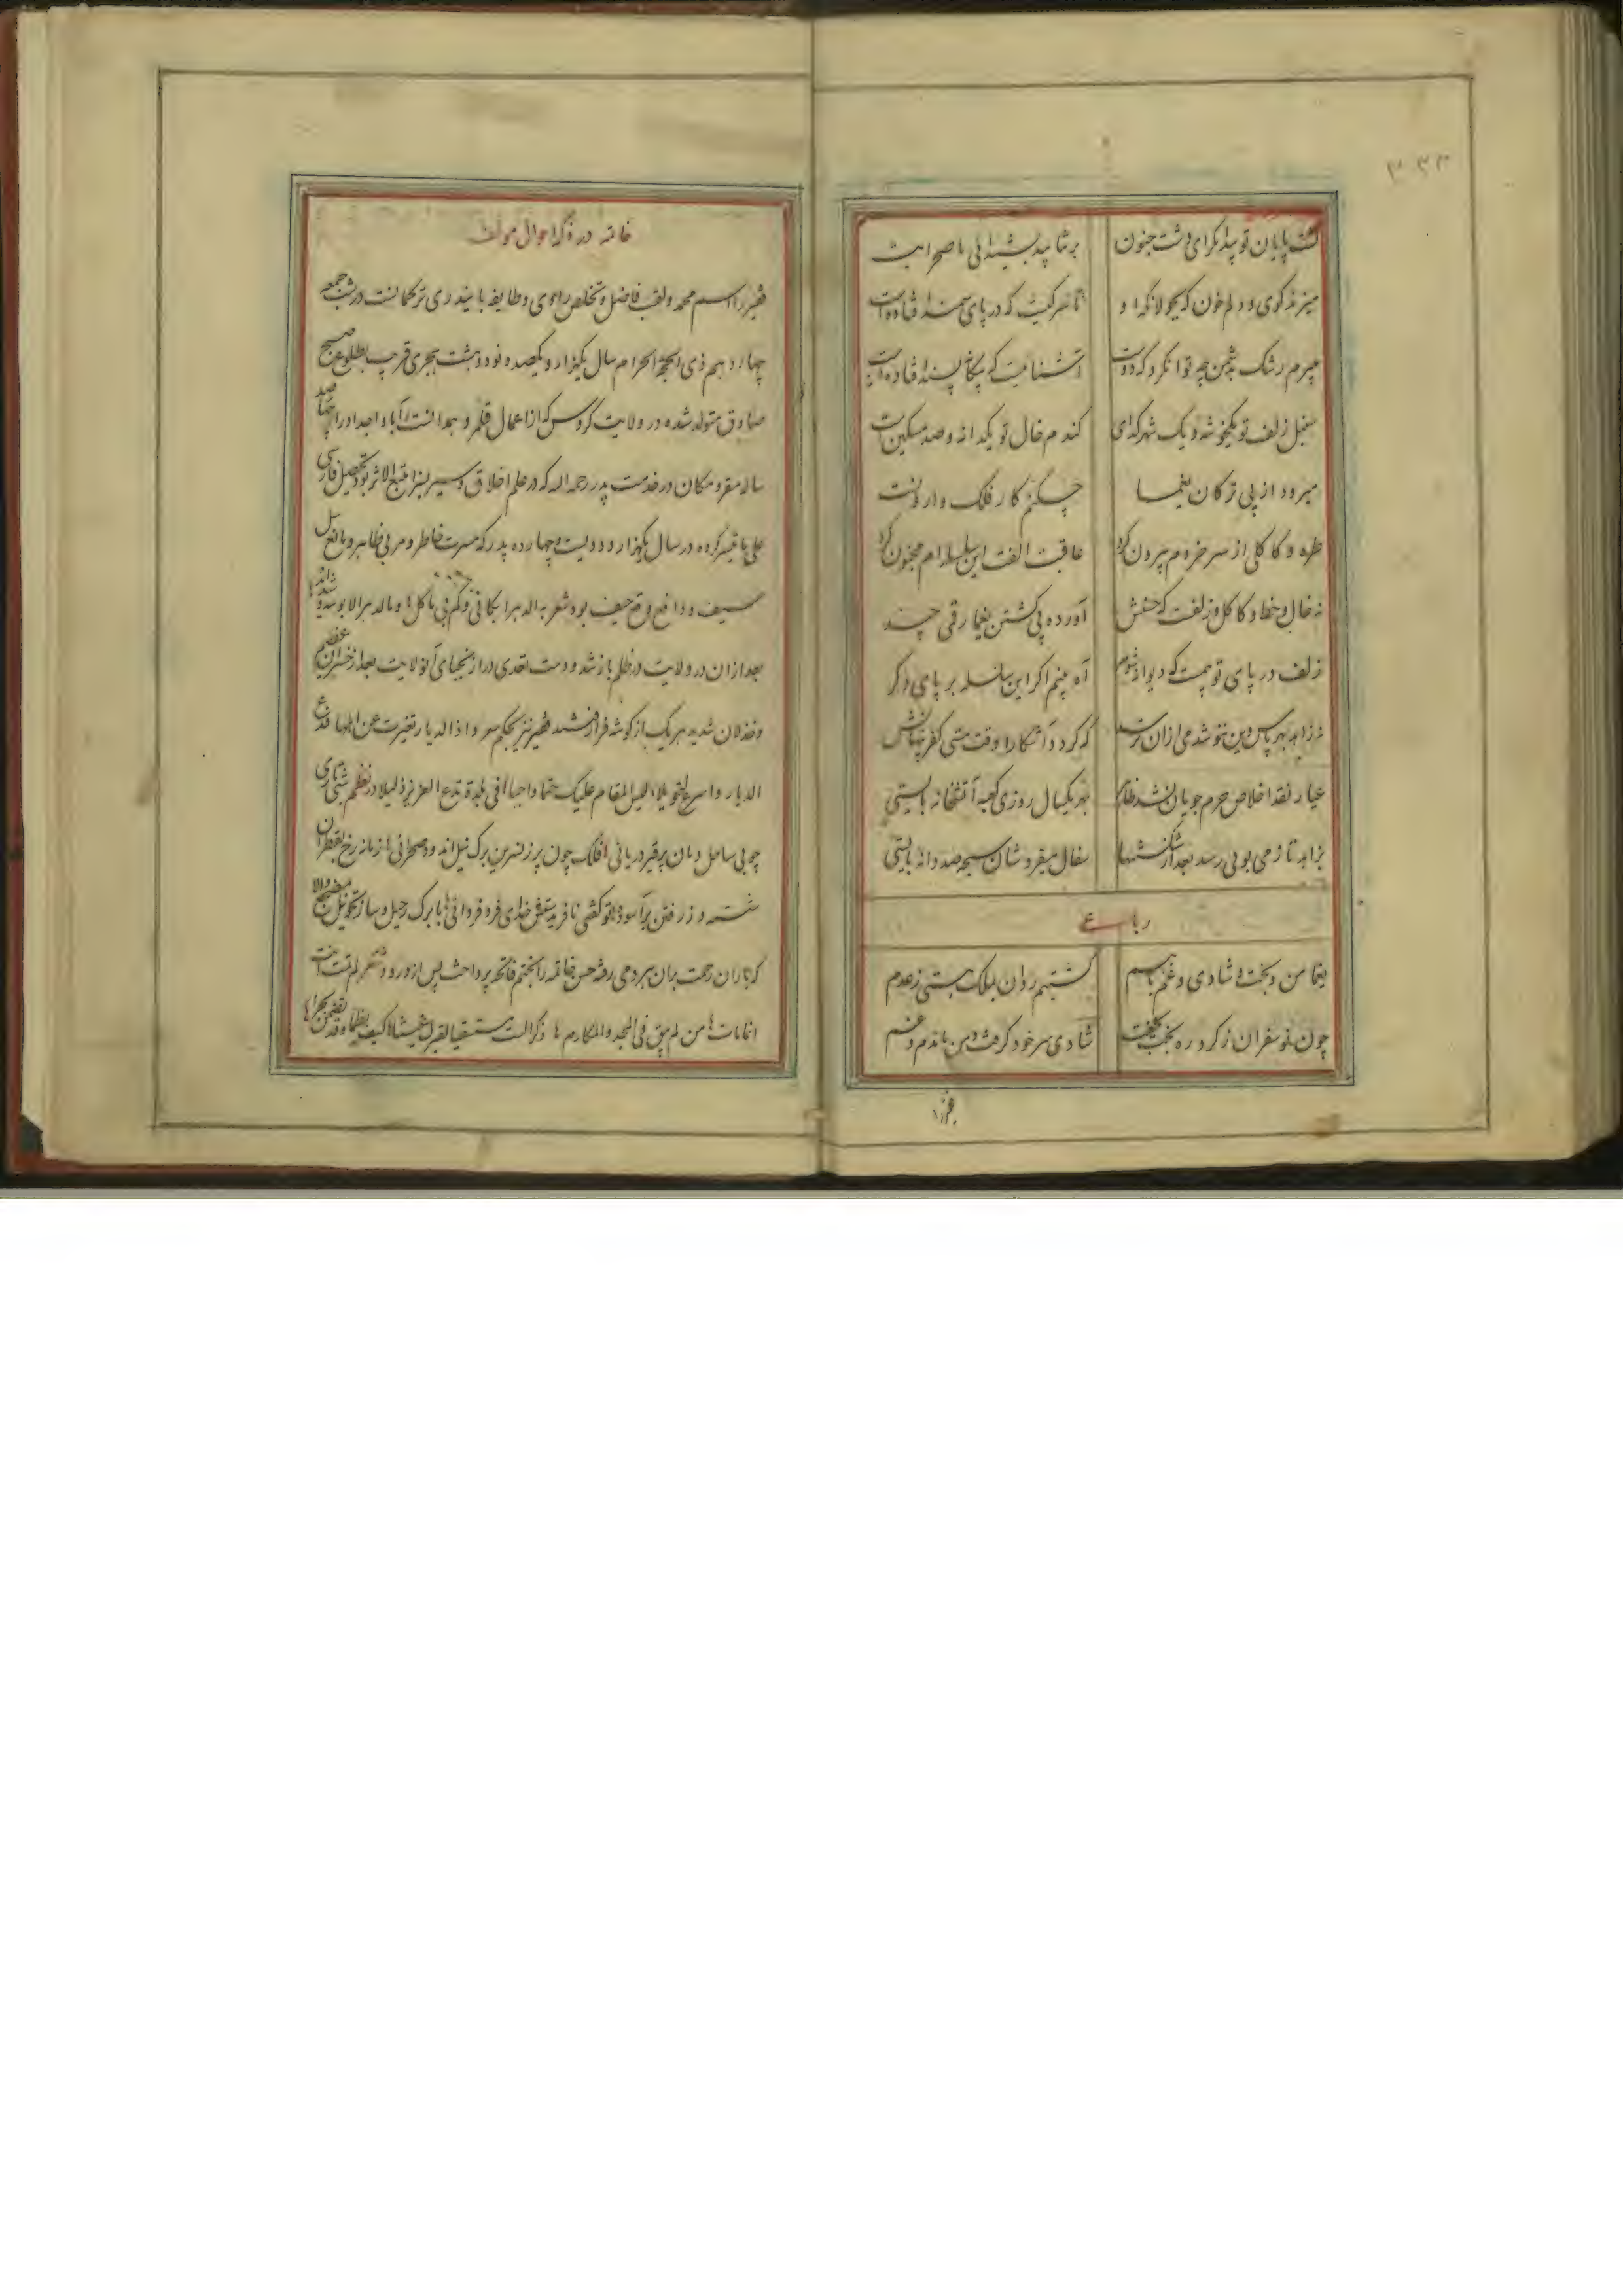 ۳۳۳
گشت پایان تو پیدا مگر ای دشت جنون برنتابید بشیدائی ما صحرایت
میزند گوی و دلم خون که بجولانگه او تا سر کیست که در پای سمند افتاده است
میرم ز رشک بدشمن چه توانکرد که دوست آشنائیست که بیگانه پسند افتاده است
سنبل زلف تو یکخوشه و یک شهر گدای گندم خال تو یکدانه و صد مسکین است
میرود از پی ترکان یغما چکنم کار فلک وارونست
طره و کاکلی از سر خردم بیرون کرد عاقبت الفت این سلسله ام مجنون کرد
نه خال و خط و کاکل و زلفست که حسنش آورده پی کشتن یغما رقمی چند
زلف در پای تو بست که دیوانه شوم آه بینم اگر این سلسله بر پای دگر
نه زاهد بهر پاس دین ننوشد می ازان ترسد که گردد آشکارا وقت مستی کفر پنهانش
عیار نقد اخلاص حرم جویان نشد ظاهر بهر یکسال روزی کعبه آتشخانه بایستی
بزاهد تا ز می بوئی رسد بعد از شکستنها سفال میفروشان سبحه صد دانه بایستی
رباعی
یغما من و بخت و شادی و غم با هم گشتیم روان بملک هستی ز عدم
چون نوسفران ز گرد ره بخت بخفت شادی سر خود گرفت و من ماندم و غم
فقیر را
خاتمه در ذکر احوال مولف
فقیر را اسم محمد و لقب فاضل و تخلص راوی و طایفه بایندری ترکمانست در شب جمعه
چهاردهم ذی الحجة الحرام سال یکهزار و یکصد و نود و هشت هجری قریب بطلوع صبح
صادق متولد شده در ولایت گروس که از اعمال قلمرو همدانست آباء و اجداد را چهار صد
ساله مقر و مکان در خدمت پدر رحمه الله که در علم اخلاق و سیر نیز متبع الاثر بود تحصیل فارسی
علی ما تیسر کرده در سال یکهزار و دویست و چهارده پدر که مسرت خاطر و مربی ظاهر و مانع سیل
سیف و دافع وقع حیف بود شعر
بعد از ان در ولایت در ظلم باز شد و دست تعدی دراز نجبای آنولایت بعد از خسران عظیم
و خذلان شدید هر یک از گوشه فراز شدند فقیر نیز بحکم شعر و اذا الدیار تغیرت عن حالها فدع
الدیار و اسرع التحویلا لیس المقام علیک حتما واجبا فی بلدة تدع العزیز ذلیلا در نظم شبی تاری
چو بی ساحل دمان پر قیر دریائی فلک چون پر ز نسرین برگ نیل اندوده صحرائی از ماز رخ بقطران
شسته و ز رفتن بر آسوده تو گفتی نافریدستش خدای فرد فردائی با برگ رحیل و ساز تحویل
که باران رحمت بران هر دمی رفته حسن خاتمه را بختم فاتحه پرداخت پس از درود
انما مات من لم یبق فی المجد و المکارم ذکرا لست مستسقیا لقبرک غیثا کیف یظما و قد تضمن بحرا